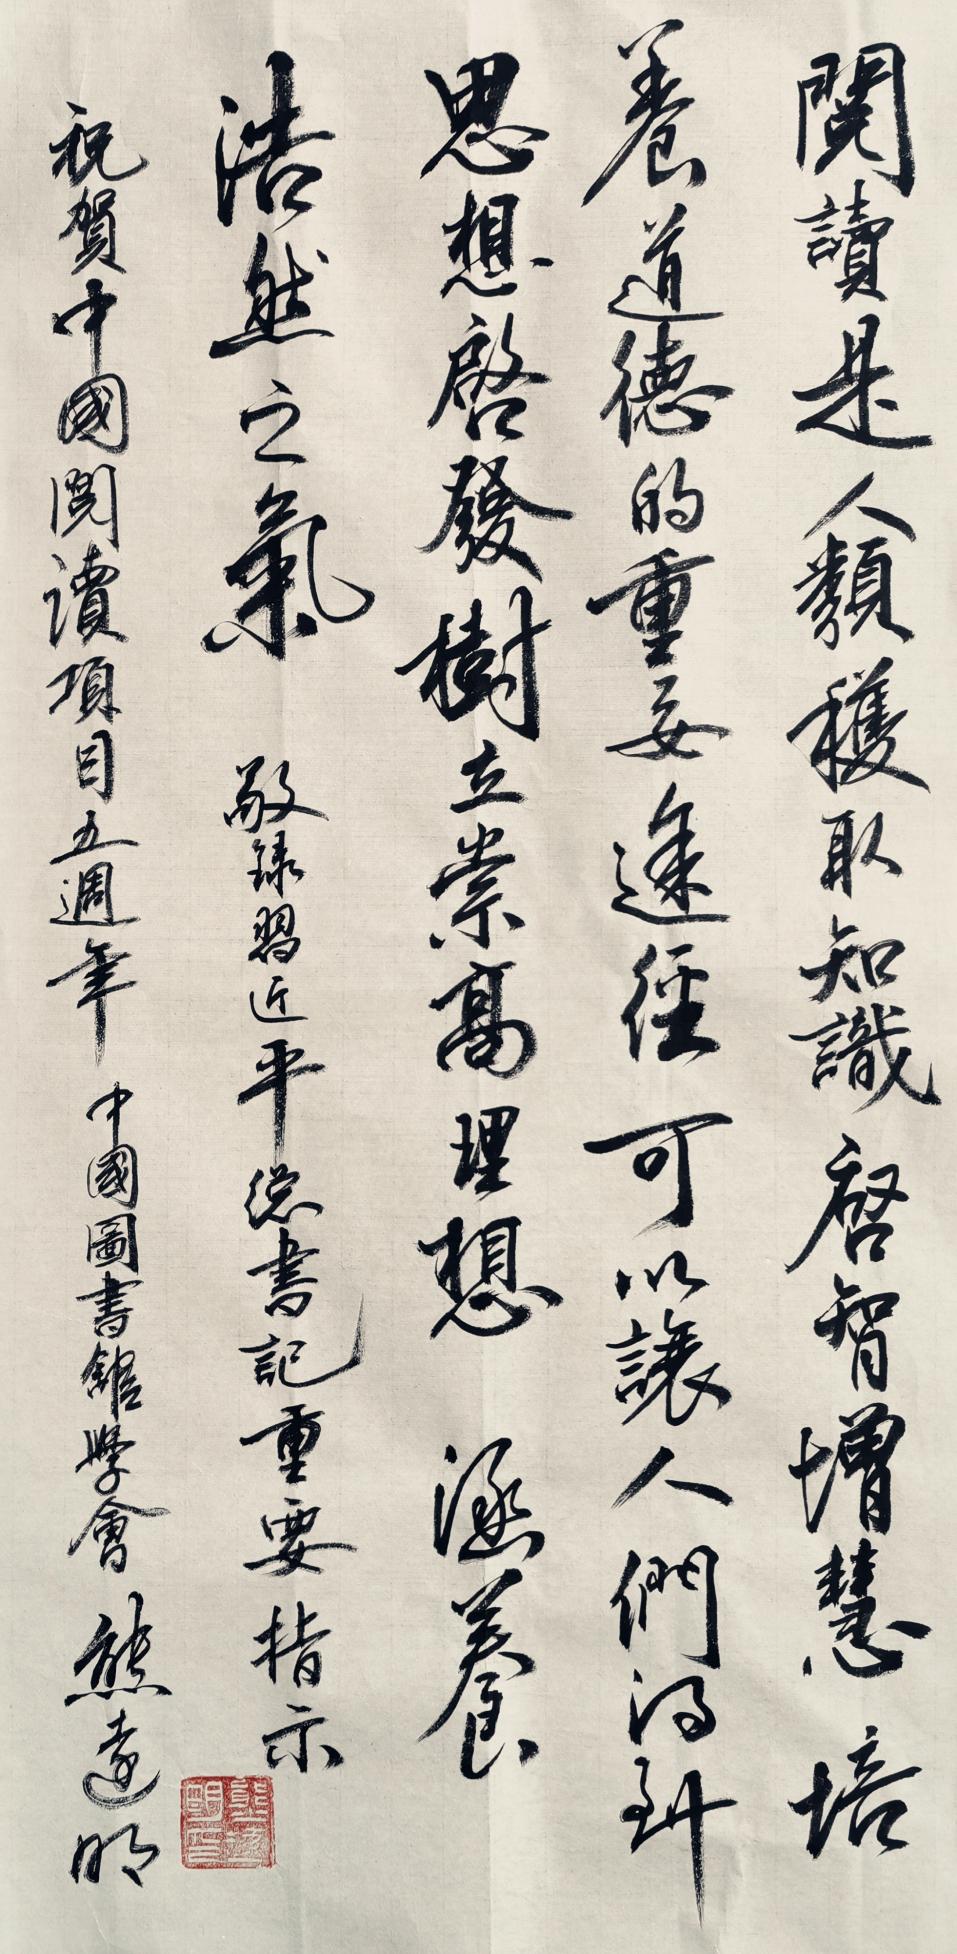 閱讀是人類穫取知識啓智增慧培
養道德的重要途徑可以讓人們得到
思想啓發樹立崇高理想涵養
浩然之氣敬録習近平總書記重要指示
祝賀中國閱讀項目五週年中國圖書館學會熊遠明
熊遠明印